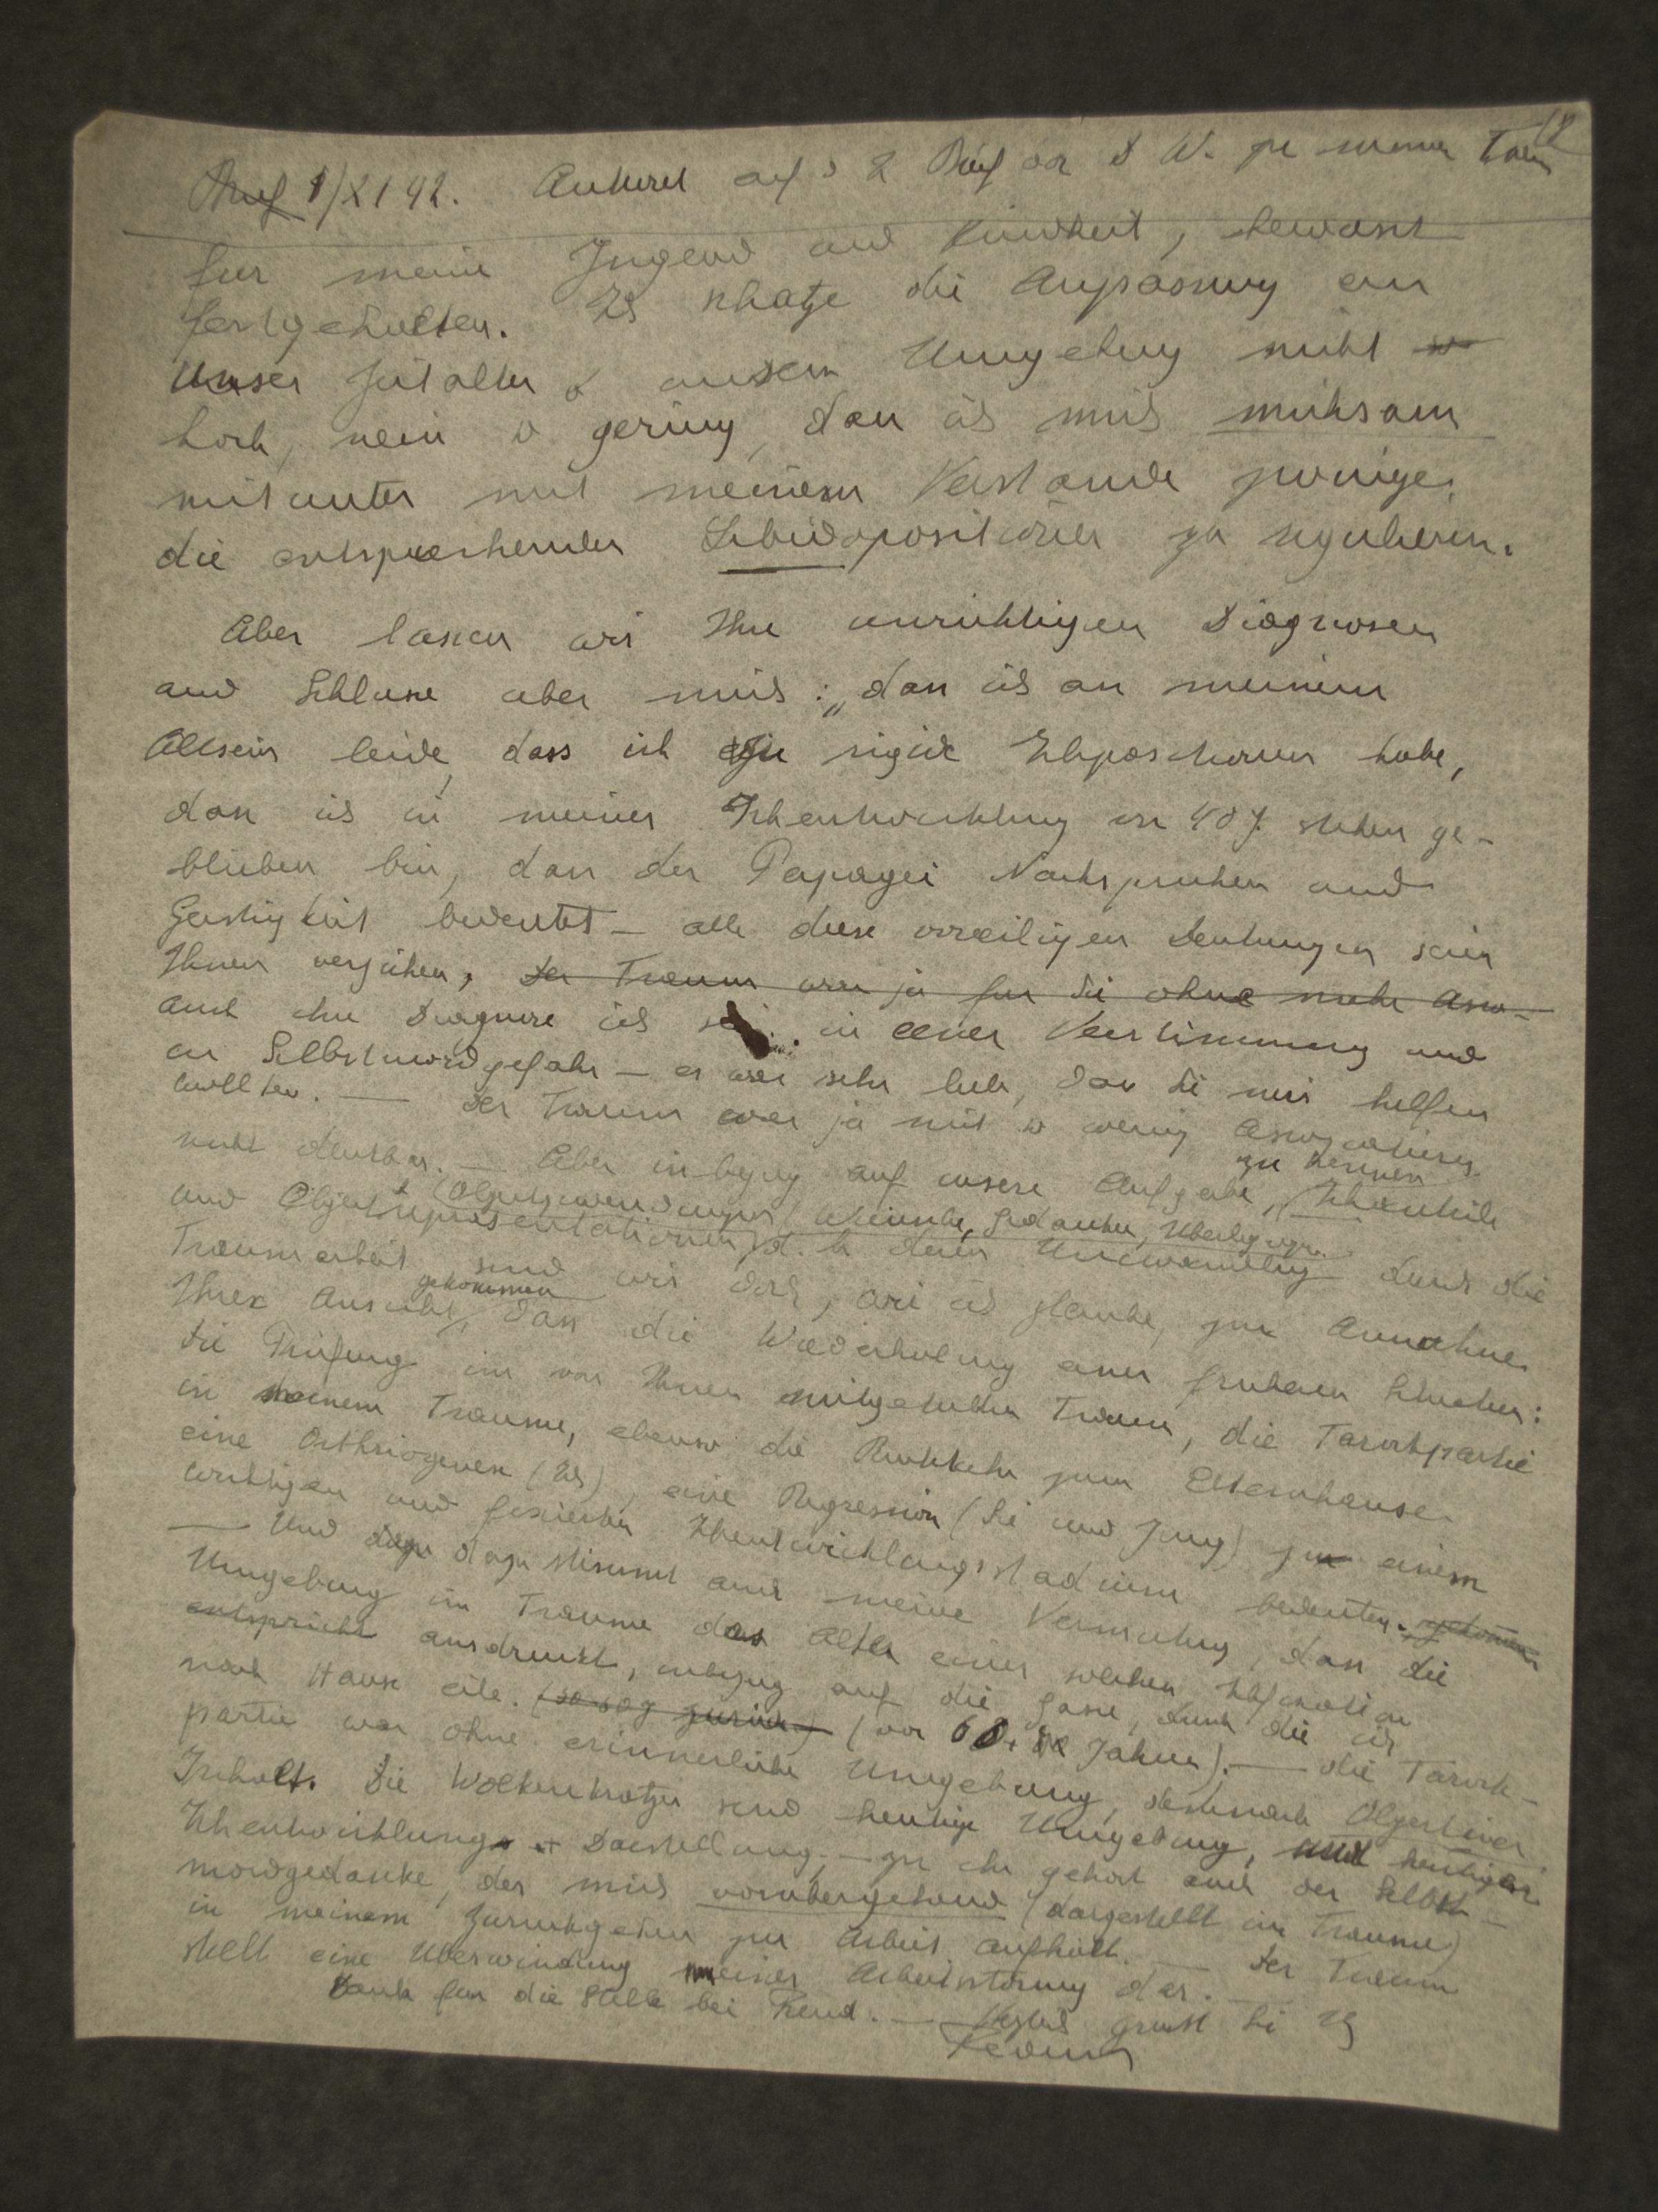 1/X 1 42. Antwort auf d 2 Brief von D W. zu meinem Traum
für meine Jugend und Kindheit, bewusst
festgehalten. Ich schätze die Anpassung an
unser Zeitalter & unsere Umgebung nicht so
hoch, nein so gering, dass ich mich mühsam
mitunter mit meinem Verstande zwinge,
die entsprechenden Libidopositionen zu regulieren.
Aber lassen wir Ihre unrichtigen Diagnosen
und Schlüsse über mich: „dass ich an meinem
Altsein leide, dass ich eine rigide Ichposition habe,
dass ich in meiner Ichentwicklung von 40 J. stehen ge-
blieben bin, dass der Papagei Nachsprechen und
Geistigkeit bedeutet – alle diese voreiligen Deutungen seien
Ihnen verziehen, der Traum war ja für Sie ohne mehr Asso-
auch die Diagnose ich sei in einer Verstimmung und
in Selbstmordgefahr – es war sehr lieb, dass Sie mir helfen
wollten. — Der Traum war ja mit so wenig Assoziationen
nicht deutbar. — Aber in bezug auf unsere Aufgabe, Ichanteile
zu kennen
und Objektrepräsentationen (Objektzuwendungen, Wünsche, Gedanken, Überlegungen)
d. h. deren Umwandlung durch die
Traumarbeit sind wir doch, wie ich glaube, zur Annahme
Ihrer Ansicht gekommen, dass die Wiederholung einer früheren Situation:
die Prüfung im von Ihnen mitgeteilten Traum, die Tarockpartie
in meinem Traume, ebenso die Rückkehr zum Elternhause
eine Orthriogenese (Ich), eine Regression (Sie und Jung) zu einem
wichtigen und fixierten Ichentwicklungsstadium bedeuten. gekommen
— Und dazu stimmt auch meine Vermutung, dass die
Umgebung im Traume das Alter einer solchen Ichfixation
entspricht ausdrückt, inbezug auf die Gasse, durch die ich
nach Hause eile. (vor 60. Jahren). — die Tarock-
partie war ohne erinnerliche Umgebung,
Inhalt. Die Wolkenkratzer sind heutige Umgebung, und heutiger
Ichentwicklungs Darstellung, – zu ihr gehört auch der Selbst-
mordgedanke, der mich vorübergehend (dargestellt im Traume)
in meinem Zurückgehen zur Arbeit aufhält. — Der Traum
stellt eine Überwindung meiner Arbeitsstörung dar. —
Dank für die Stelle bei Freud. — Herzlich grüsst Sie Ihr
Federn